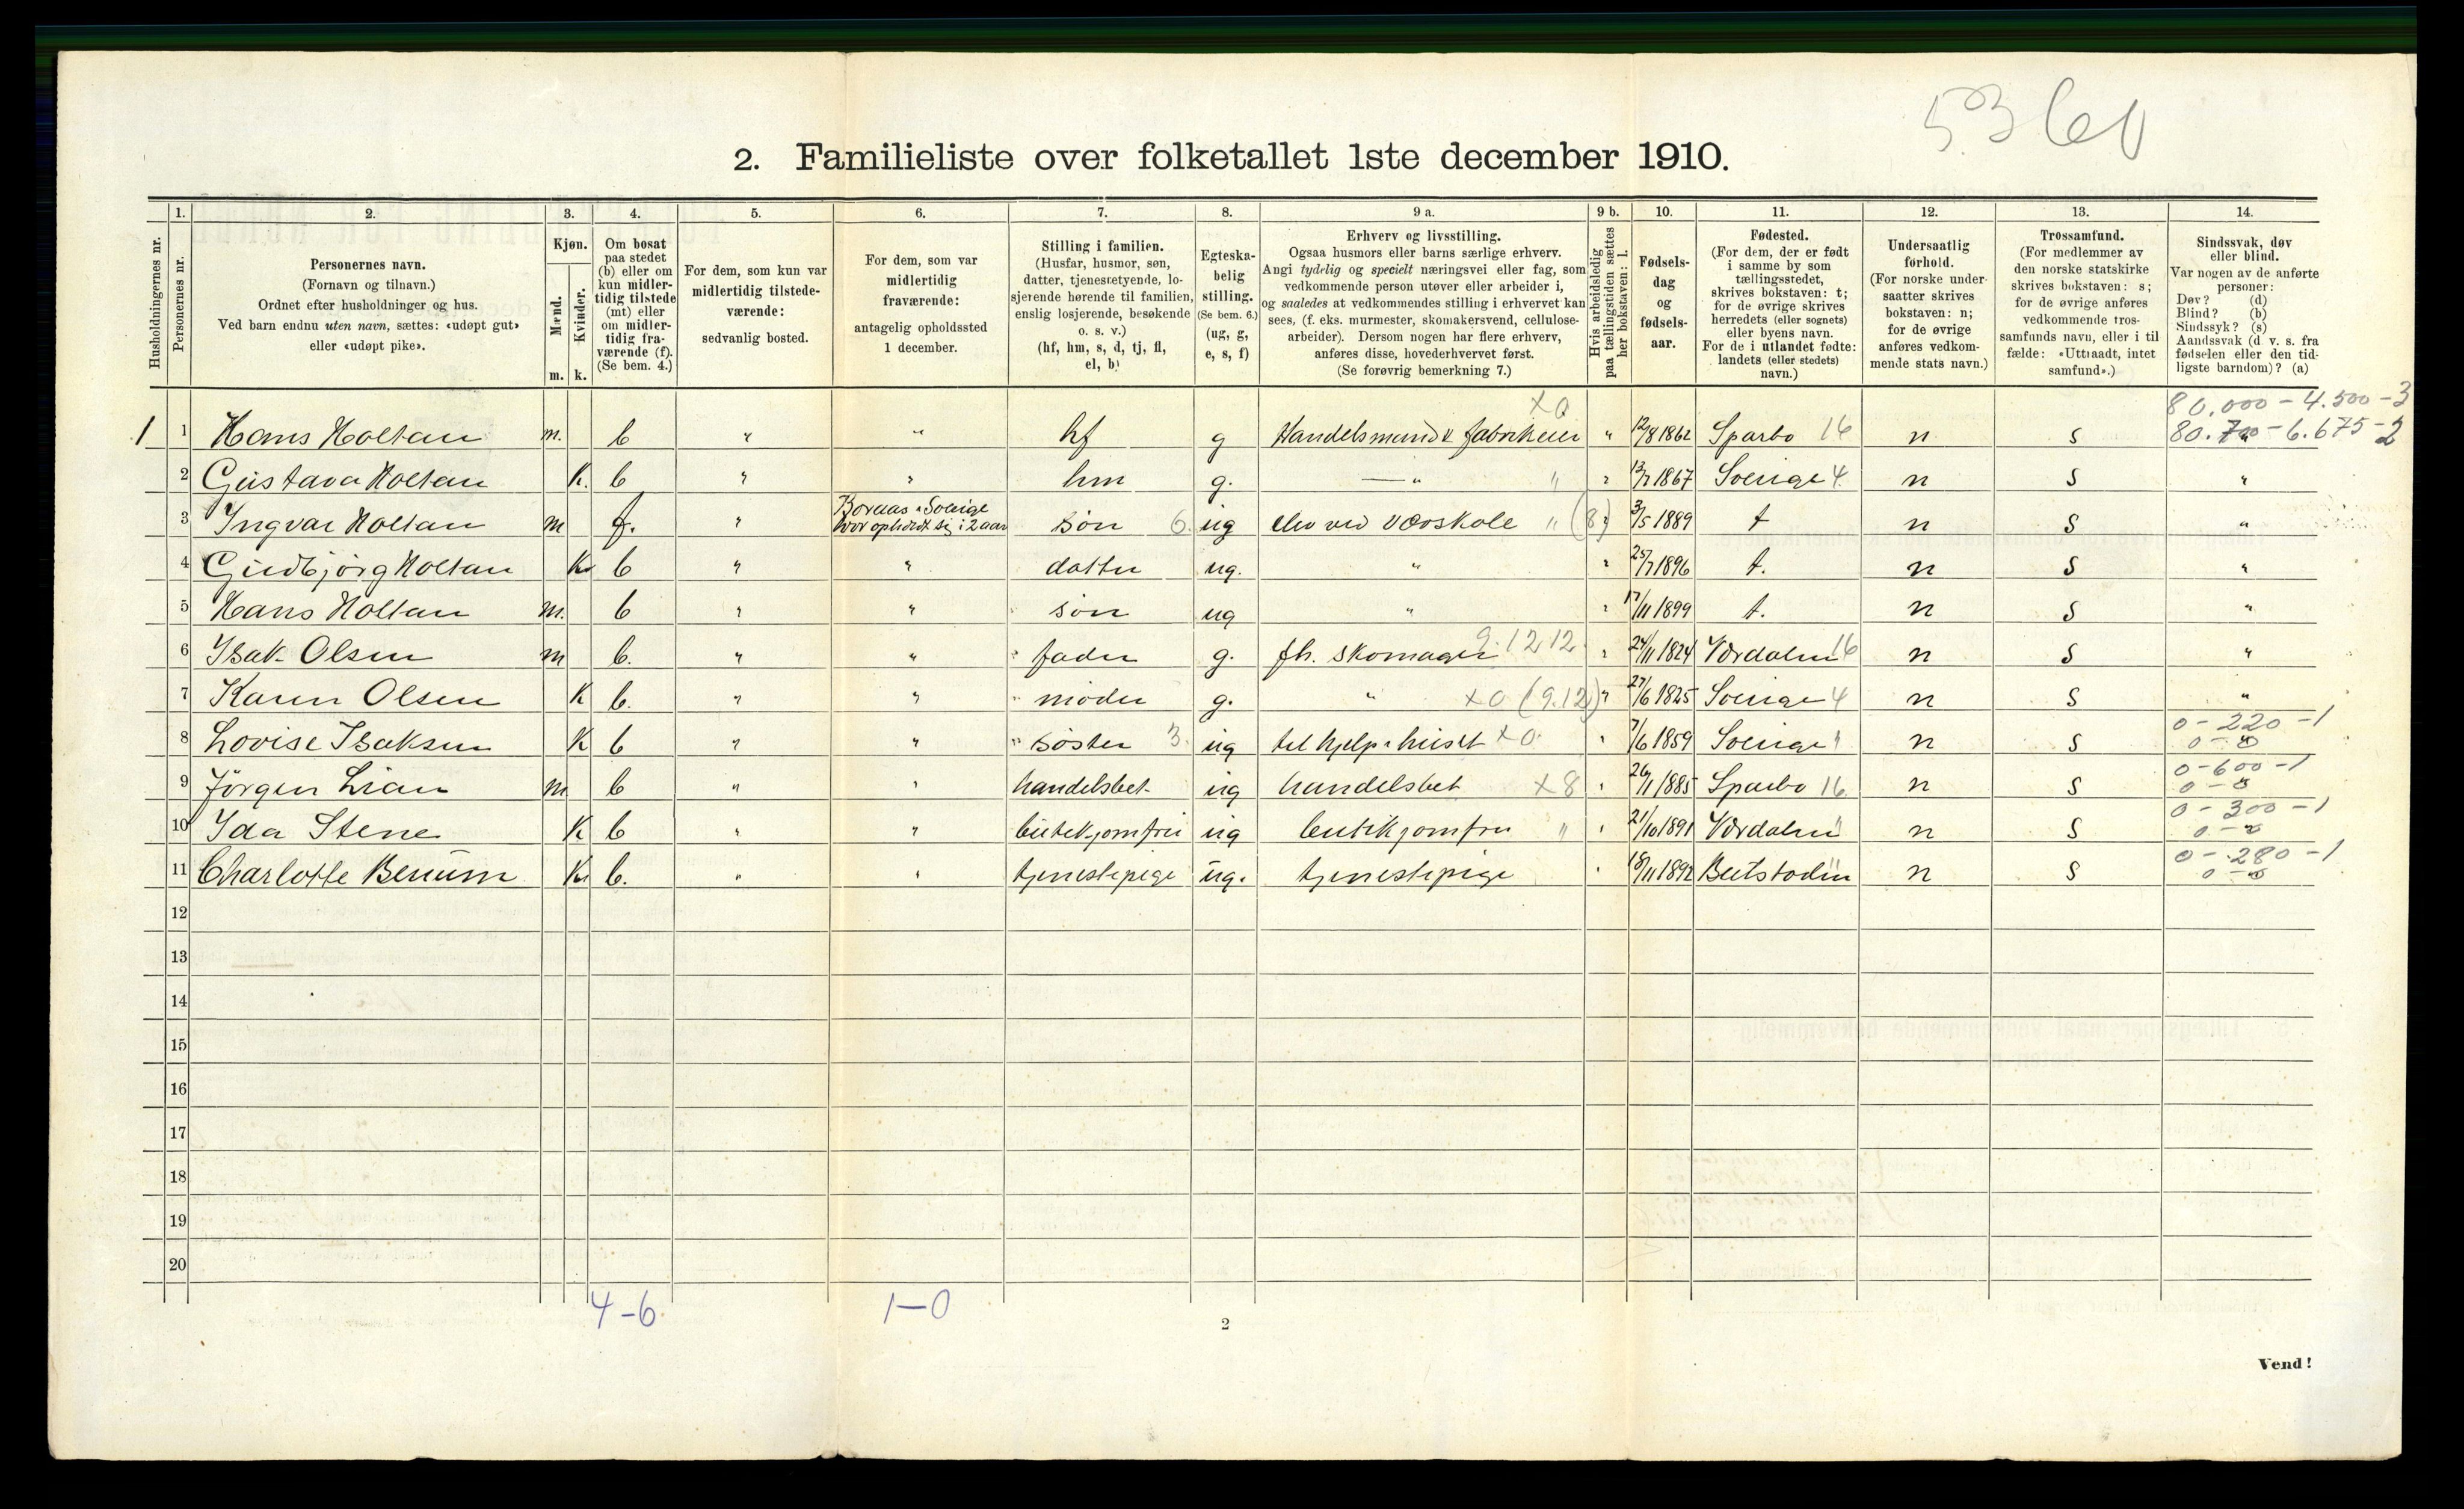 5360
2. Familieliste over folketallet 1ste december 1910.
1. 2. 3. 4. 5. 6. 7. 8. 9 a. 9 b. 10. 11. 12. 13. 14.
Husholdningernes nr.
Personernes nr.
Personernes navn.
(Fornavn og tilnavn.)
Ordnet efter husholdninger og hus.
Ved barn endnu uten navn, sættes: «udøpt gut»
eller «udøpt pike».
Kjøn.
Mænd.
Kvinder.
m. k.
Om bosat
paa stedet
(b) eller om
kun midler-
tidig tilstede
(mt) eller
om midler-
tidig fra-
værende (f).
(Se bem. 4.)
For dem, som kun var
midlertidig tilstede-
værende:
sedvanlig bosted.
For dem, som var
midlertidig
fraværende:
antagelig opholdssted
1 december.
Stilling i familien.
(Husfar, husmor, søn,
datter, tjenesteytende, lo-
sjerende hørende til familien,
enslig losjerende, besøkende
o. s. v.)
(hf, hm, s, d, tj, fl,
el, b)
Egteska-
belig
stilling.
(Se bem. 6.)
(ug, g,
e, s, f)
Erhverv og livsstilling.
Ogsaa husmors eller barns særlige erhverv.
Angi tydelig og specielt næringsvei eller fag, som
vedkommende person utøver eller arbeider i,
og saaledes at vedkommendes stilling i erhvervet kan
sees, (f. eks. murmester, skomakersvend, cellulose-
arbeider). Dersom nogen har flere erhverv,
anføres disse, hovederhvervet først.
(Se forøvrig bemerkning 7.)
Hvis arbeidsledig
paa tællingstiden sættes
her bokstaven: l.
Fødsels-
dag
og
fødsels-
aar.
Fødested.
(For dem, der er født
i samme by som
tællingsstedet,
skrives bokstaven: t;
for de øvrige skrives
herredets (eller sognets)
eller byens navn.
For de i utlandet fødte:
landets (eller stedets)
navn.)
Undersaatlig
forhold.
(For norske under-
saatter skrives
bokstaven: n;
for de øvrige
anføres vedkom-
mende stats navn.)
Trossamfund.
(For medlemmer av
den norske statskirke
skrives bokstaven: s;
for de øvrige anføres
vedkommende tros-
samfunds navn, eller i til
fælde: «Uttraadt, intet
samfund».)
Sindssvak, døv
eller blind.
Var nogen av de anførte
personer:
Døv? (d)
Blind? (b)
Sindssyk? (s)
Aandssvak (d. v. s. fra
fødselen eller den tid-
ligste barndom)? (a)
80.000 - 4.500 - 3
1 1 Hans Holtan m. b " " hf g Handelsmand & fabrikeier x0 " 12/8 1862 Sparbo 16 n s 80.700 - 6.675 - 2
2 Gustava Holtan K. b " " hm g. — " " " 13/7 1867 Sverige 4 n s "
3 Ingvar Holtan m f. " Boraas i Sverige
hvor opholdt sig i 2 aar søn 6. ug elev ved vævskole " (8) " 3/5 1889 t n s "
4 Gudbjörg Holtan K b " " datter ug. " " 25/7 1896 t. n s "
5 Hans Holtan m. b " " søn ug " " 17/11 1899 t. n s "
6 Isak Olsen m b. " " fader g. fh. skomager 9.12 12. " 24/11 1824 Værdalen 16 n s "
7 Karen Olsen K b. " " moder g. " x0 (9.12) " 27/6 1825 Sverige 4 n s "
0 - 220 - 1
8 Lovise Isaksen K b " " søster 3. ug til hjelp i huset x0 " 7/6 1859 Sverige " n s 0 - 0
0 - 600 - 1
9 Jörgen Lian m b " " handelsbet. ug handelsbet x8 " 26/11 1885 Sparbo 16 n s 0 - 0
0 - 300 - 1
10 Ida Stene K b " " butikjomfru ug butikjomfru " " 21/10 1891 Værdalen " n s 0 - 0
0 - 280 - 1
11 Charlotte Benum K. b. " " tjenestepige ug. tjenestepige " 18/11 1892 Beitstaden " n s 0 - 0
12
13
14
15
16
17
18
19
20
4-6 1-0
2
Vend!